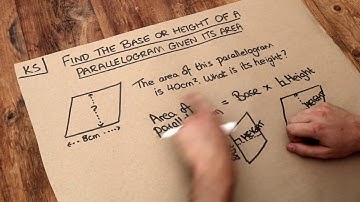 K.S
FIND THE BASE OR HEIGHT OF A
PARALLELOGRAM GIVEN ITS AREA
The area of this parallelogram
is 40cm². What is its height?
?
8cm
Area
= Base × h.Height
HEIGHT
HEIGHT